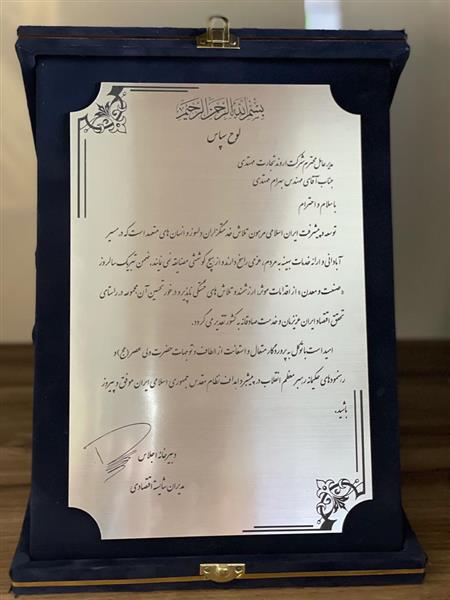 بسم الله الرحمن الرحیم
لوح سپاس
مدیرعامل محترم شرکت اروند تجارت مهتدی
جناب آقای مهندس بهرام مهتدی
با سلام و احترام
توسعه و پیشرفت ایران اسلامی مرهون تلاش خدمتگزاران دلسوز و انسان های متعهد است که در مسیر
آبادانی و ارائه خدمات بهینه به مردم، عزمی راسخ دارند و از هیچ کوششی مضایقه نمی نمایند. ضمن تبریک سالروز
«صنعت و معدن» از اقدامات موثر، ارزشمند و تلاش های خستگی ناپذیر و درخور تحسین آن مجموعه در راستای
تحقق اقتصاد ایران عزیزمان و خدمت صادقانه به کشور تقدیر می گردد.
امید است با توکل به پروردگار متعال و استعانت از الطاف و توجهات حضرت ولی عصر (عج) و
رهنمودهای حکیمانه رهبر معظم انقلاب در پیشبرد اهداف نظام مقدس جمهوری اسلامی ایران موفق و پیروز
باشید.
دبیرخانه اجلاس
مدیران شایسته اقتصادی